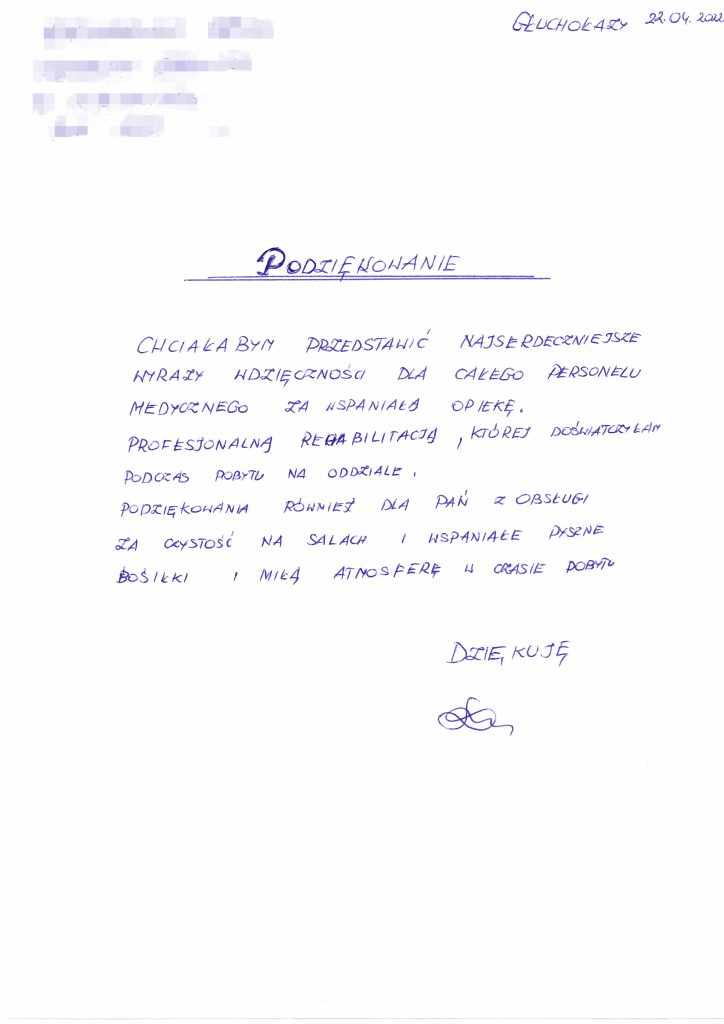 GŁUCHOŁAZY 22.04.2022
PODZIĘKOWANIE
CHCIAŁA BYM PRZEDSTAWIĆ NAJSERDECZNIEJSZE
WYRAZY WDZIĘCZNOŚCI DLA CAŁEGO PERSONELU
MEDYCZNEGO ZA WSPANIAŁĄ OPIEKĘ.
PROFESJONALNĄ REHABILITACJĄ, KTÓREJ DOŚWIATCZYŁAM
PODCZAS POBYTU NA ODDZIALE.
PODZIĘKOWANIA RÓWNIEŻ DLA PAŃ Z OBSŁUGI
ZA CZYSTOŚĆ NA SALACH I WSPANIAŁE PYSZNE
POSIŁKI I MIŁĄ ATMOSFERĘ W CZASIE POBYTU
DZIĘKUJĘ